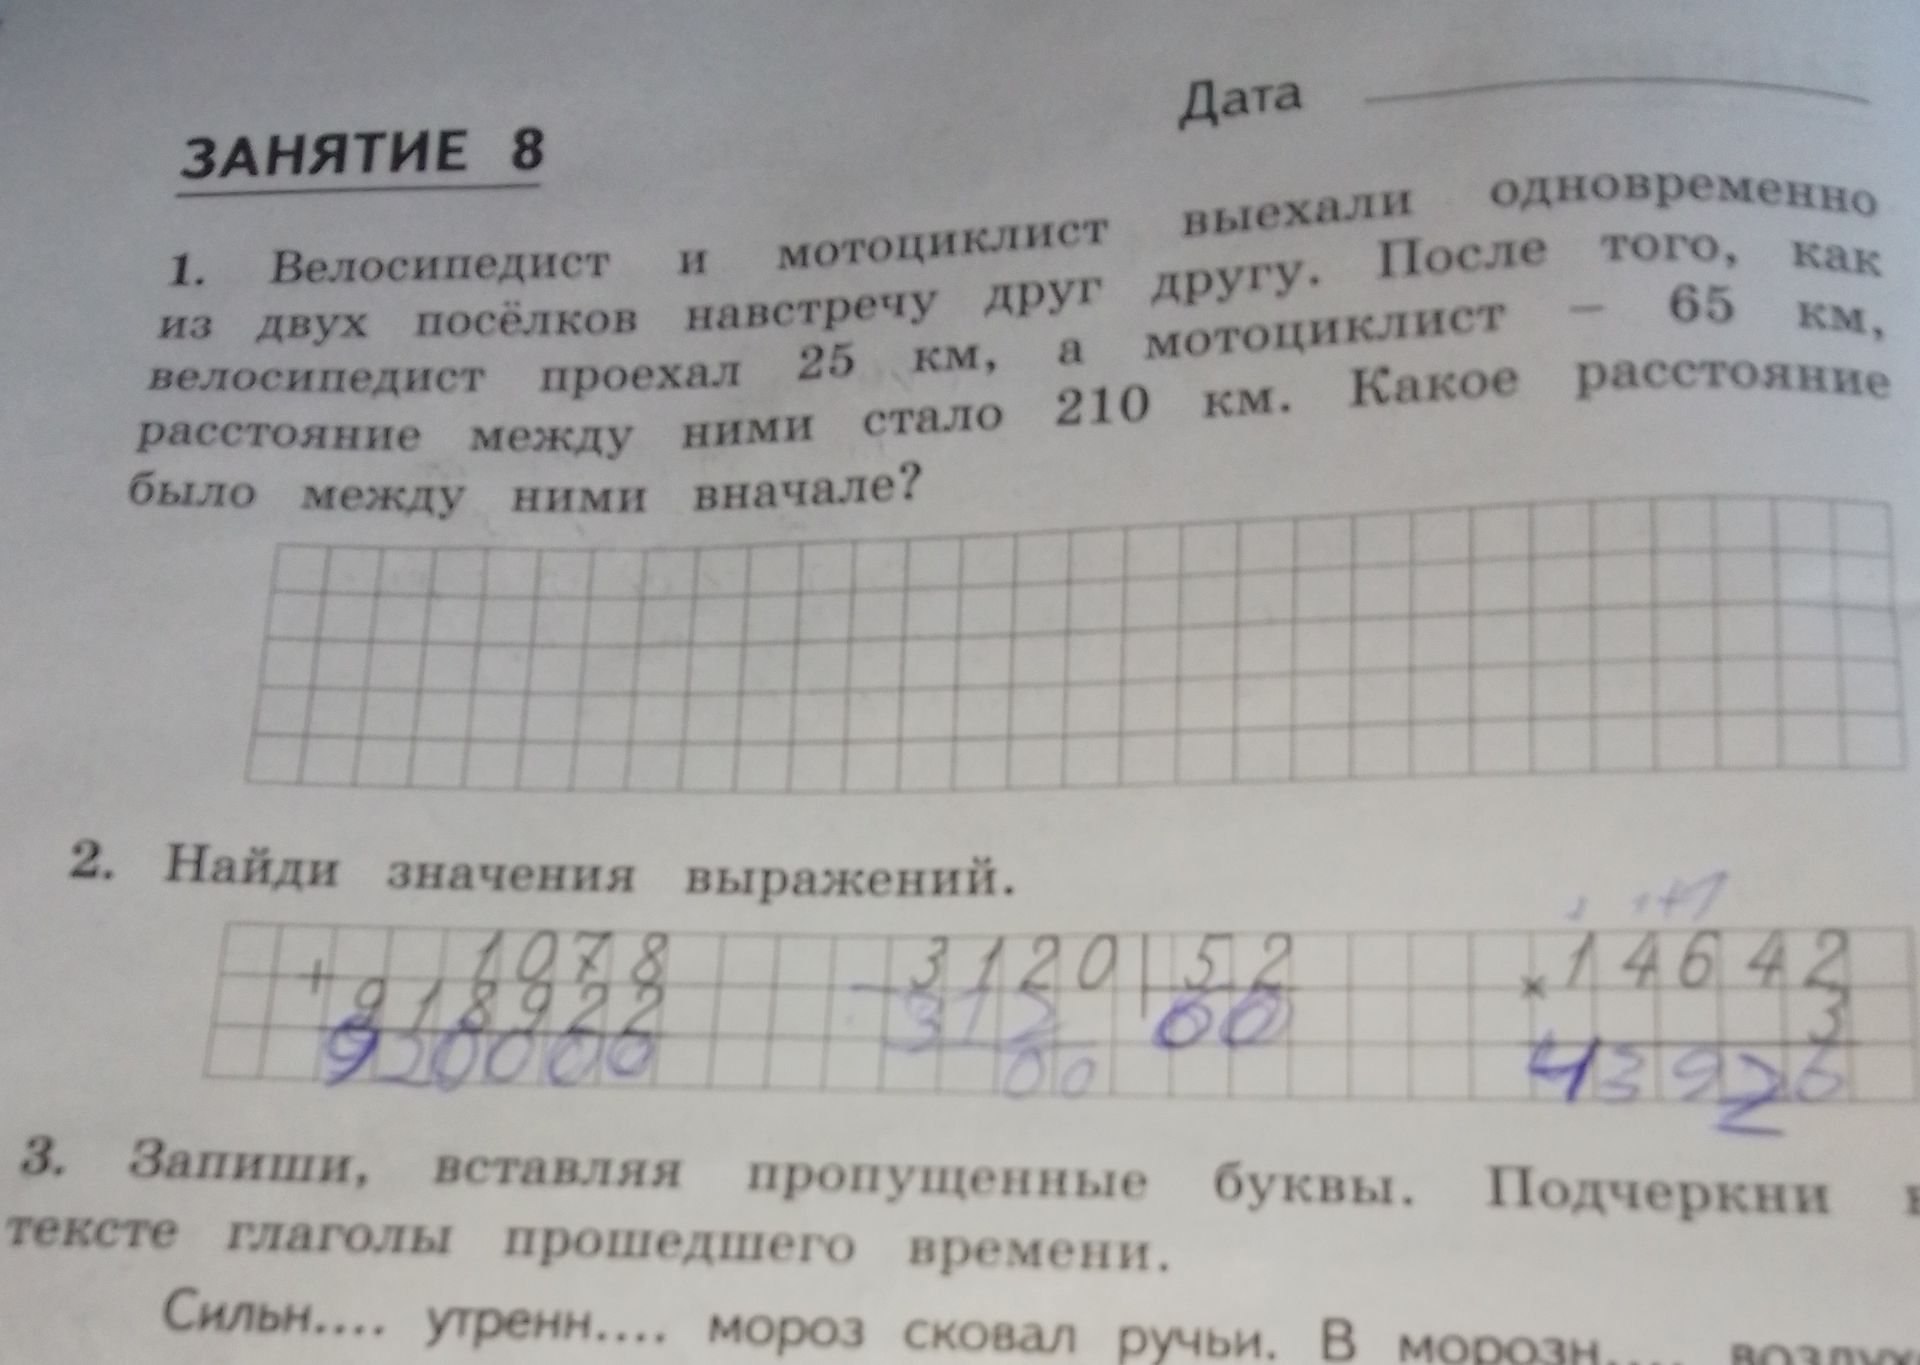 Дата
ЗАНЯТИЕ 8
1. Велосипедист и мотоциклист выехали одновременно
из двух посёлков навстречу друг другу. После того, как
велосипедист проехал 25 км, а мотоциклист – 65 км,
расстояние между ними стало 210 км. Какое расстояние
было между ними вначале?
2. Найди значения выражений.
+ 1078
918922
920000
- 3120 | 52
312 60
00
× 14642
3
43926
3. Запиши, вставляя пропущенные буквы. Подчеркни в
тексте глаголы прошедшего времени.
Сильн.... утренн.... мороз сковал ручьи. В морозн....